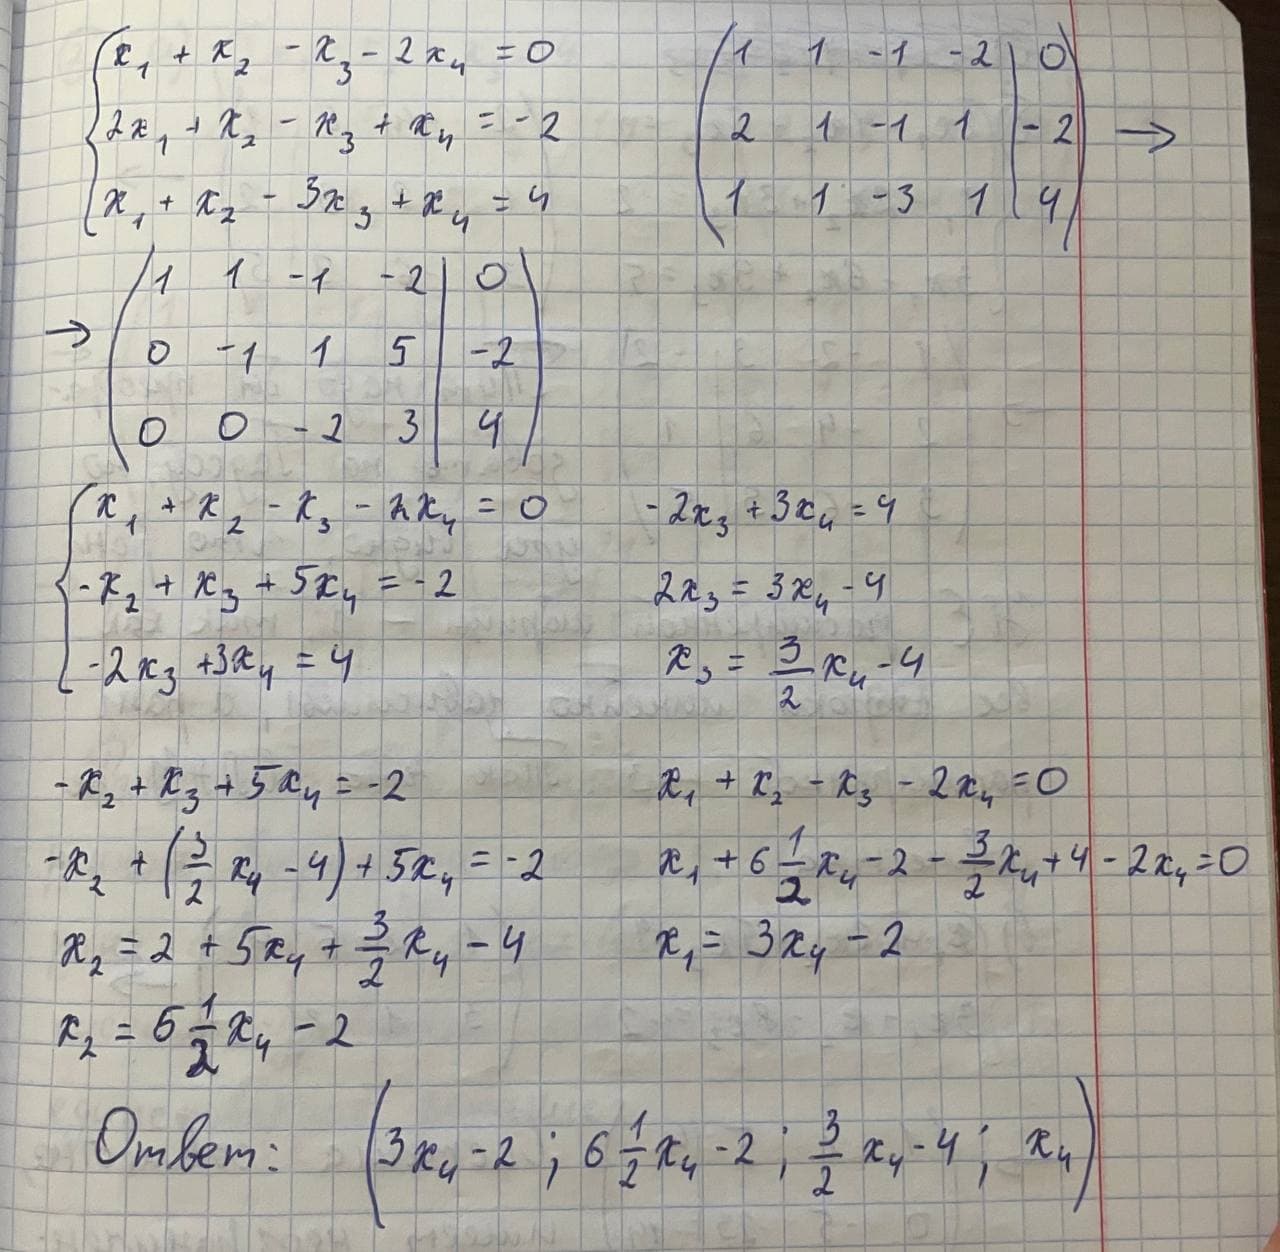 x₁ + x₂ - x₃ - 2x₄ = 0
2x₁ + x₂ - x₃ + x₄ = -2
x₁ + x₂ - 3x₃ + x₄ = 4
1 1 -1 -2 | 0
2 1 -1 1 | -2 →
1 1 -3 1 | 4
1 1 -1 -2 | 0
→ 0 -1 1 5 | -2
0 0 -2 3 | 4
x₁ + x₂ - x₃ - 2x₄ = 0
-x₂ + x₃ + 5x₄ = -2
-2x₃ + 3x₄ = 4
-2x₃ + 3x₄ = 4
2x₃ = 3x₄ - 4
x₃ = 3/2 x₄ - 4
-x₂ + x₃ + 5x₄ = -2
-x₂ + (3/2 x₄ - 4) + 5x₄ = -2
x₂ = 2 + 5x₄ + 3/2 x₄ - 4
x₂ = 6 1/2 x₄ - 2
x₁ + x₂ - x₃ - 2x₄ = 0
x₁ + 6 1/2 x₄ - 2 - 3/2 x₄ + 4 - 2x₄ = 0
x₁ = 3x₄ - 2
Ответ: (3x₄ - 2 ; 6 1/2 x₄ - 2 ; 3/2 x₄ - 4 ; x₄)